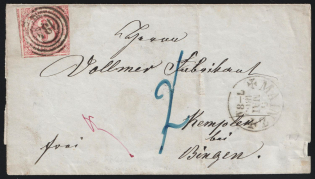 Herrn
Vollmer Fabrikant
2
Kempten
bei
frei
Bingen.